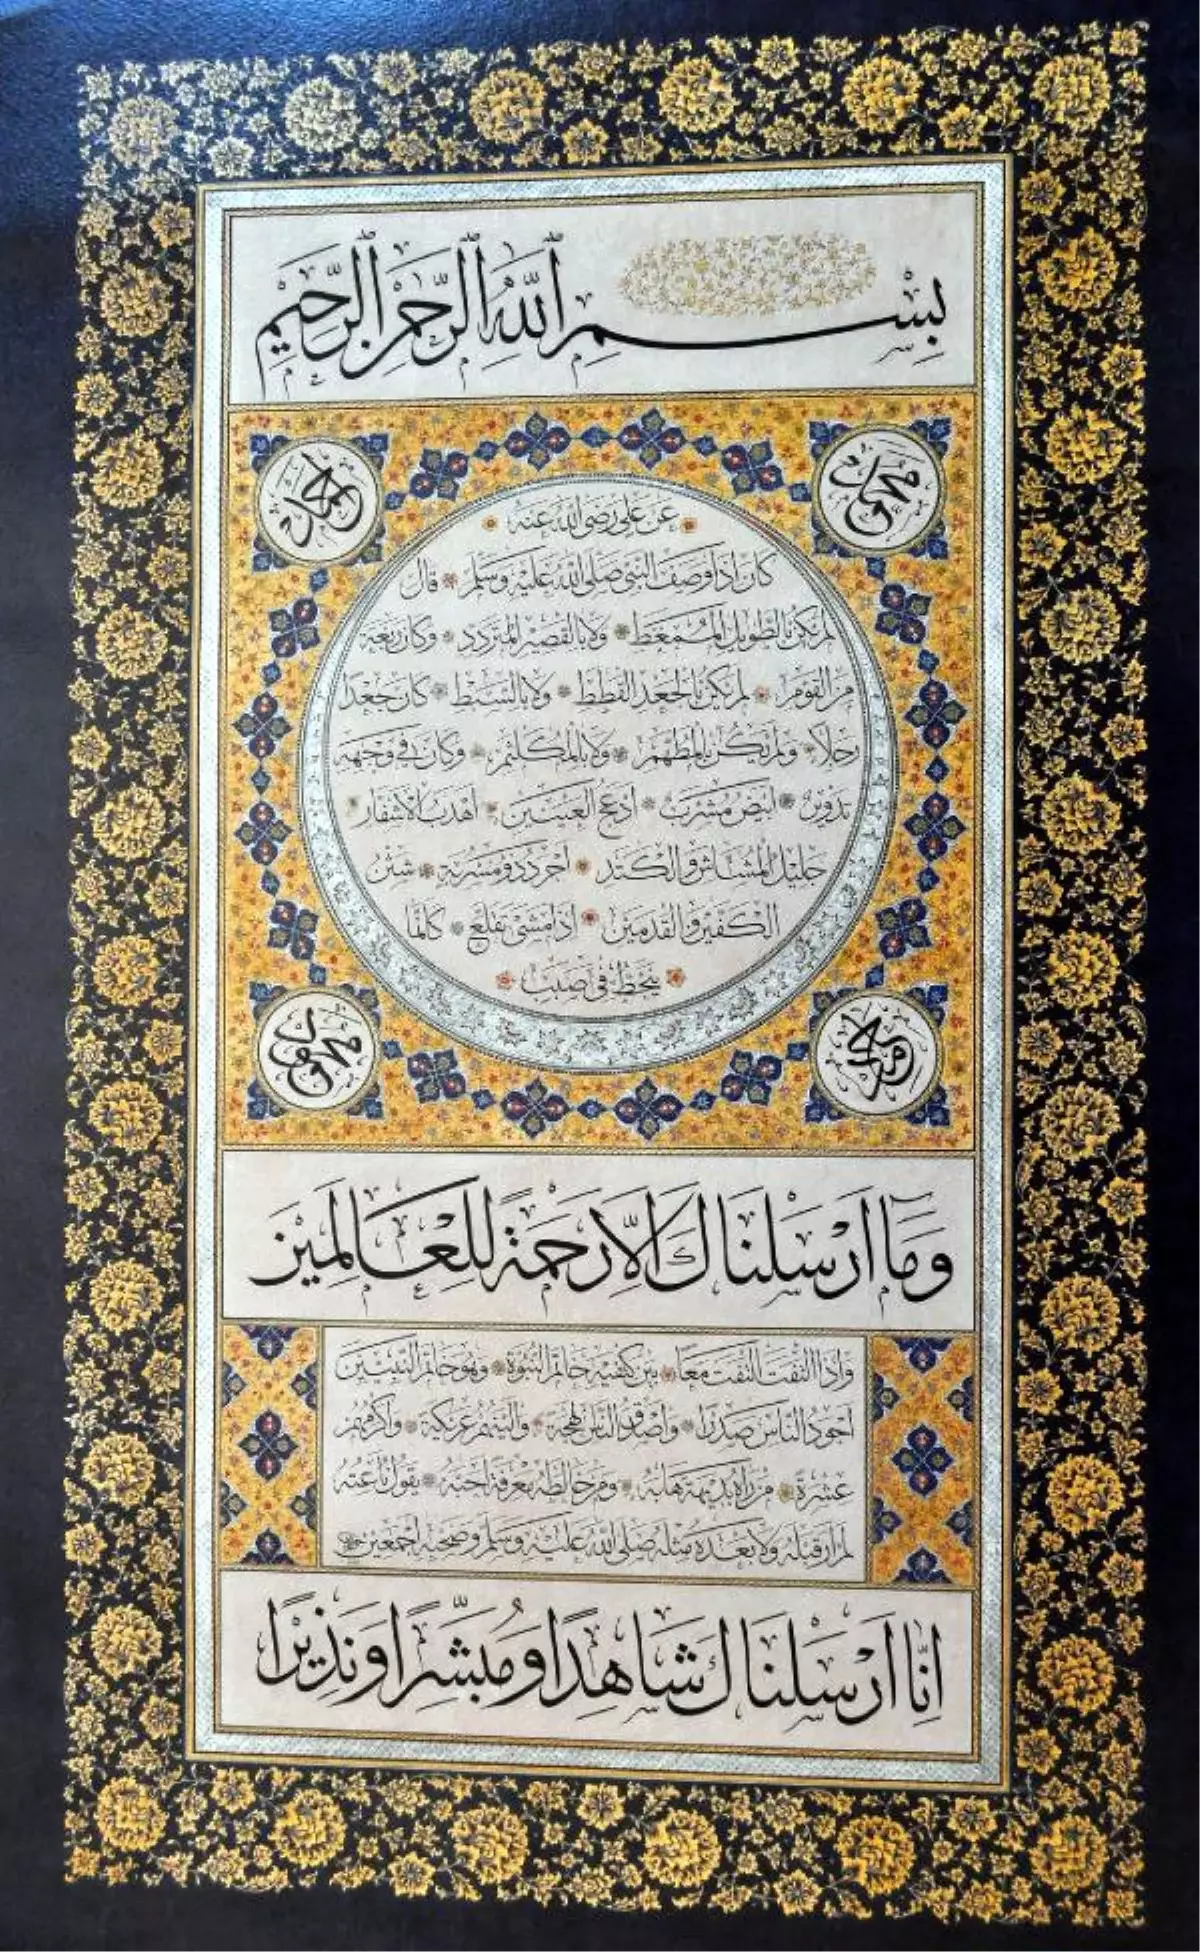 بِسْمِ اللّٰهِ الرَّحْمٰنِ الرَّحِيْمِ
محمد
احمد
عن علي رضي الله عنه
كان اذا وصف النبي صلى الله عليه وسلم قال
لم يكن بالطويل الممغط ولا بالقصير المتردد وكان ربعة
من القوم لم يكن بالجعد القطط ولا بالسبط كان جعدا
رجلا ولم يكن بالمطهم ولا بالمكلثم وكان في وجهه
تدوير ابيض مشرب ادعج العينين اهدب الاشفار
جليل المشاش والكتد اجرد ذو مسربة شثن
الكفين والقدمين اذا مشى تقلع كانما
ينحط في صبب
محمود
وَمَا اَرْسَلْنَاكَ اِلَّا رَحْمَةً لِلْعَالَمِيْنَ
واذا التفت التفت معا بين كتفيه خاتم النبوة وهو خاتم النبيين
اجود الناس صدرا واصدق الناس لهجة والينهم عريكة واكرمهم
عشرة من راه بديهة هابه ومن خالطه معرفة احبه يقول ناعته
لم ار قبله ولا بعده مثله صلى الله عليه وسلم وصحبه اجمعين
اِنَّا اَرْسَلْنَاكَ شَاهِدًا وَمُبَشِّرًا وَنَذِيْرًا